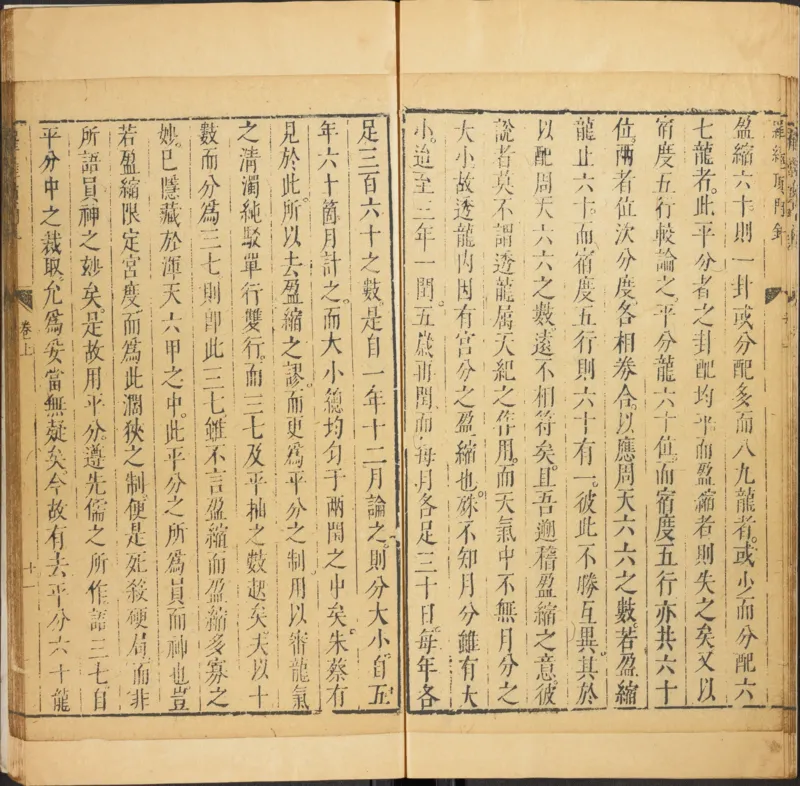 盈縮六十則一卦或分配多而八九龍者。或少而分配六
七龍者。此平分者之卦配均平而盈縮者則失之矣又以
宿度五行較論之。平分龍六十位。而宿度五行亦共六十
位。兩者位次分度各相券合。以應周天六六之數。若盈縮
龍止六十。而宿度五行則六十有一。彼此不勝互異。其於
以配周天六六之數遠不相符矣。且吾遡稽盈縮之意。彼
說者莫不謂透龍属天紀之作用。而天氣中不無月分之
大小故透龍内因有宮分之盈縮也。殊不知月分雖有大
小。迨至三年一閏。五歲再閏而每月各足三十日。每年各
足三百六十之數。是自一年十二月論之。則分大小。自五
年六十箇月計之。而大小緫均匀于兩閏之中矣。朱蔡有
見於此。所以去盈縮之謬。而更爲平分之制。用以審龍氣
之清濁純駁單行雙行。而三七及乎柚之數起矣。夫以十
數而分爲三七則卽此三七。雖不言盈縮而盈縮多寡之
妙。已隱藏於渾天六甲之中。此平分之所爲員而神也豈
若盈縮限定宮度而爲此濶狹之制。便是死殺硬局。而非
所語員神之妙矣。是故用平分。遵先儒之所作。語三七。自
平分中之裁取。允爲妥當無疑矣。今故有去平分六十龍
卷上
十